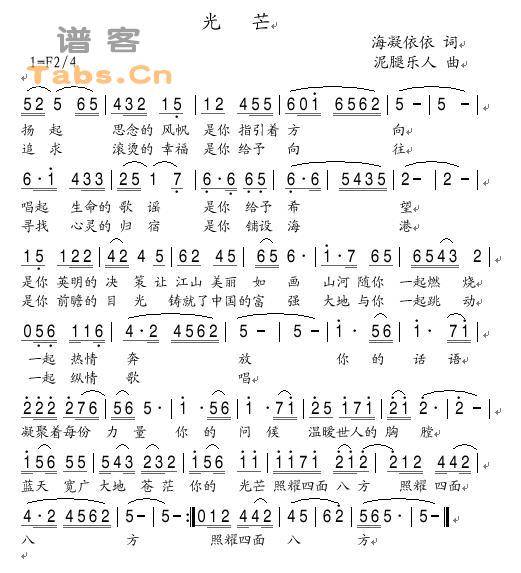 光 芒
谱客
Tabs.Cn
海凝依依 词
1=F2/4
泥腿乐人 曲
52 5 65 | 432 15 | 12 455 | 601 6562 | 5 - | 5 - |
扬 起 思念的 风帆 是你 指引着 方 向
追 求 滚烫的 幸福 是你 给予 向 往
6·1 433 | 25 1 7 | 6·6 65 | 6·6 | 5435 | 2- | 2- |
唱起 生命的 歌 谣 是你 给予 希 望
寻找 心灵的 归 宿 是你 铺设 海 港
15 122 | 42 4 5 | 62 45 | 65 6· | 1·7 65 | 6543 2 |
是你 英明的 决 策 让 江山 美丽 如 画 山河 随你 一起 燃 烧
是你 前瞻的 目 光 铸就了 中国的 富 强 大地 与你 一起 跳 动
056 116 | 4·2 4562 | 5 - | 5 - | 1· 56 | 1· 71 |
一起 热情 奔 放 你 的 话 语
一起 纵情 歌 唱
222 276 | 56 5· | 1· 56 | 1· 71 | 25 171 | 21 2· | 2 - |
凝聚着 每份 力 量 你 的 问 候 温暖 世人的 胸 膛
156 55 | 543 232 | 156 11 | 1171 212 | 212 442 |
蓝天 宽广 大地 苍茫 你的 光芒 照耀 四面 八 方 照耀 四面
4·2 4562 | 5- | 5 -:‖012 442 | 45 62 | 565 5· | 5 - |
八 方 照耀 四面 八 方